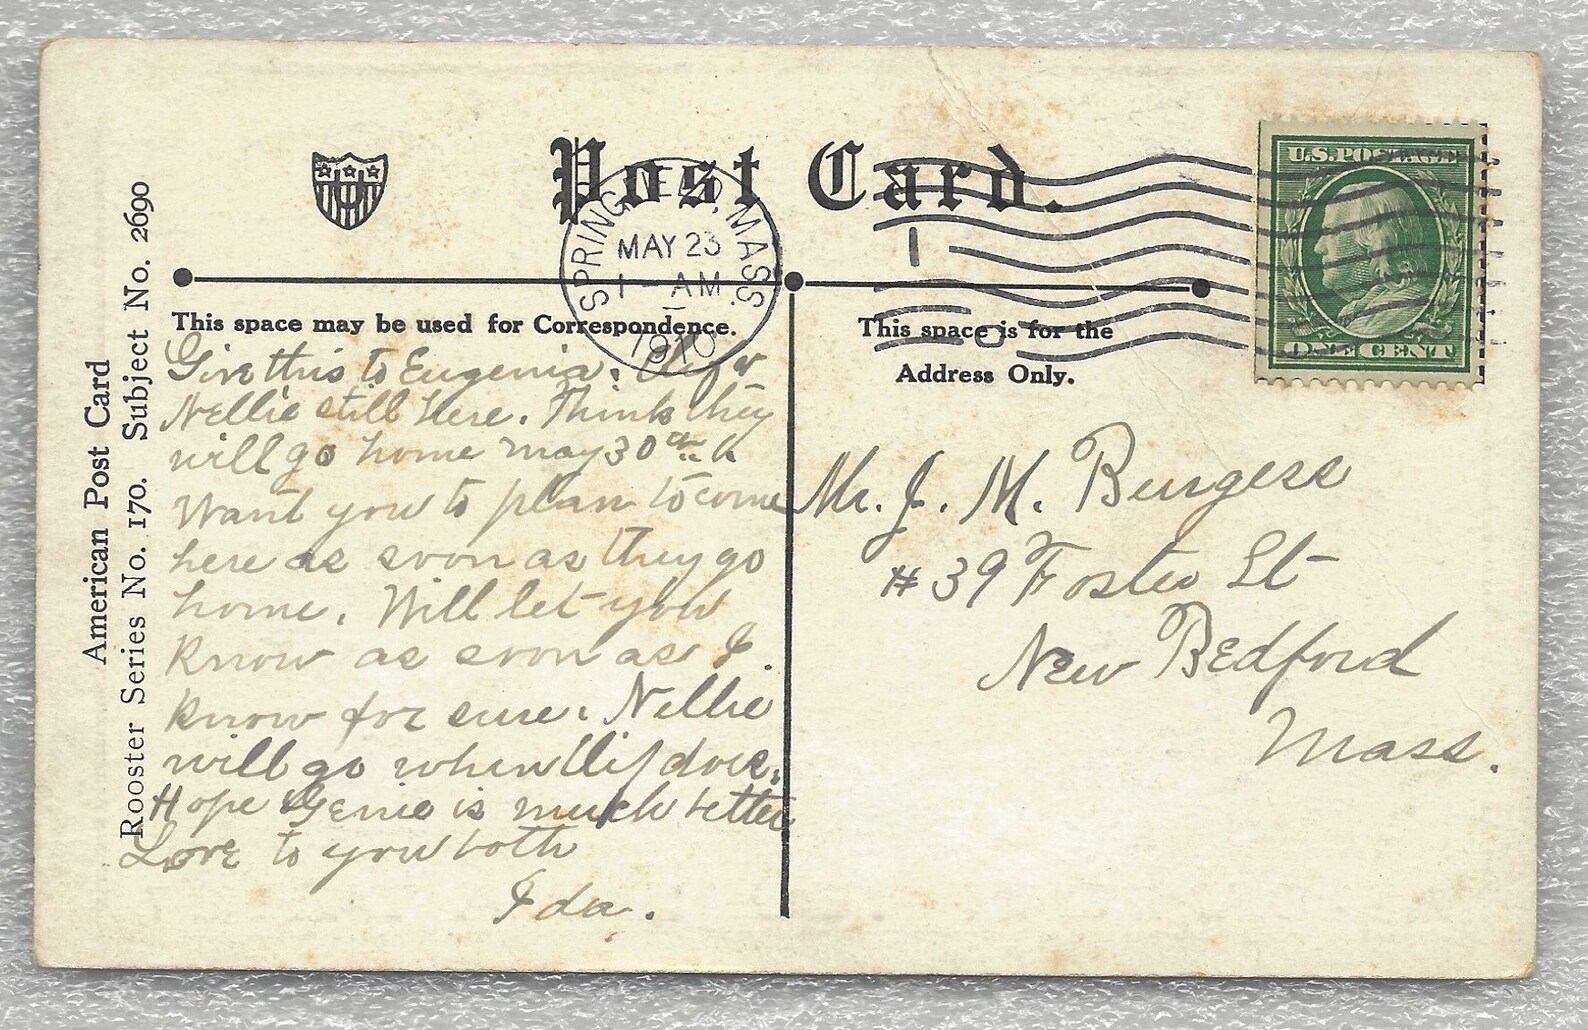 Post Card.
SPRINGFIELD, MASS.
MAY 23
1 - AM
1910
1
U.S. POSTAGE
ONE CENT
American Post Card
Rooster Series No. 170. Subject No. 2690
This space may be used for Correspondence.
Give this to Eugenia. Clif &
Nellie still here. Think they
will go home May 30th
Want you to plan to come
here as soon as they go
home. Will let you
know as soon as I
know for sure. Nellie
will go when Clif does.
Hope Genie is much better
Love to you both
Ida.
This space is for the
Address Only.
Mr. J. M. Burgess
# 39 Foster St
New Bedford
Mass.